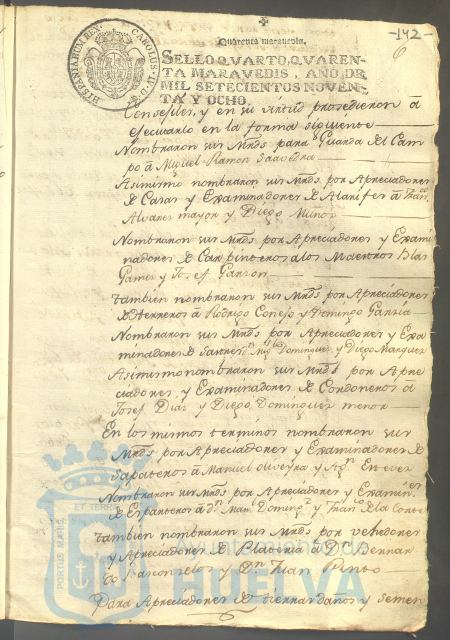 -142-
6
Quarenta maravedis.
SELLO QVARTO, QVAREN-
TA MARAVEDIS, AÑO DE
MIL SETECIENTOS NOVEN-
TA Y OCHO.
HISPANIARUM REX CAROLUS IV D G
y en su virtud procedieron á
efecuarlo en la forma siguiente
Nombraron sus Mrds para Guarda del Cam
po á Miguel Ramon Saavedra
Asimismo nombraron sus Mrds por Apreciadores
de Casas y Examinadores de Alarifes á Juan
Alvarez mayor y Diego Muñoz
Nombraron sus Mrds por Apreciadores y Exami
nadores de Carpinteros a los Maestros Blas
Gamez y Josef Garzon
Tambien nombraron sus Mrds por Apreciadores
de Herreros á Rodrigo Conejo y Domingo Garzia
Nombraron sus Mrds por Apreciadores y Exa
minadores de Sastres Migl Dominguez y Diego Marquez
Asimismo nombraron sus Mrds por Apre
ciadores, y Examinadores de Cordoneros á
Josef Diaz y Diego Dominguez menor
En los mismos terminos nombraron sus
Mrds por Apreciadores y Examinadores de
Zapateros á Manuel Oliveyra y Agn Estevez
Nombraron sus Mrds por Apreciadores y Examinres
de Esparteros á Doming y Franco de la Corte
Tambien nombraron sus Mrds por vehedores
y Apreciadores de Plateria á Dn Bernar
do Vasconzelos y Dn Juan Pinto
Para Apreciadores de tierras daños y semen
PORTUS MARIS ET TERRÆ
Ayuntamiento de
HUELVA